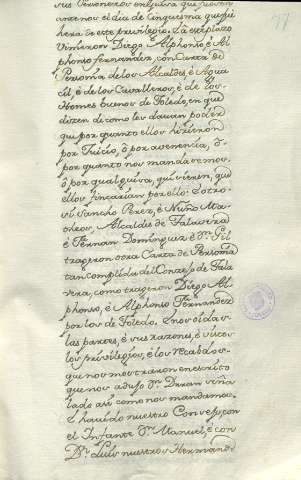 sus Personeros en guisa que fuesen
ante nos el dia de Cinquesma que ui
hera de este privilegio. E a este plazo
vinieron Diego Alphonso, è Al-
phonso fernandez, con Carta de
Personia de los Alcaldes, è Agua
cil, è de los Cavalleros, è de los
Homes buenos de Toledo, en que
dizen de como les davan poder
que por quanto ellos hiziesen
por Juicio, ò por avenencia, ò
por quanto nos mandasemos,
ò por qual guisa, qui viesen, que
ellos fincarian por ello. E otro
si Sancho Perez, è Nuño Ma-
theos, Alcaldes de Talavera
è Fernan Dominguez è Dn. Gil
trageron otra Carta de Personia
tan complida del Conzejo de Tala
vera, como trageron Diego Al-
phonso, è Alphonso Fernandez
por los de Toledo. E nos oidas
las partes, è sus razones, è vistos
los privilegios, è los recabdos
que nos mostraron en escrito
que nos aduso Dn. Duran sella
lado asi como nos mandamos.
E havido nuestro Consejo, con
el Infante Dn. Manuel, è con
Dn. Luis nuestros Hermanos